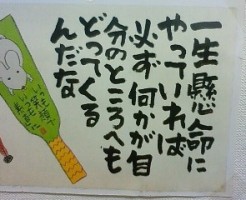 一生懸命に
やっていれば
必ず何かが自
分のところへも
どってくる
んだな